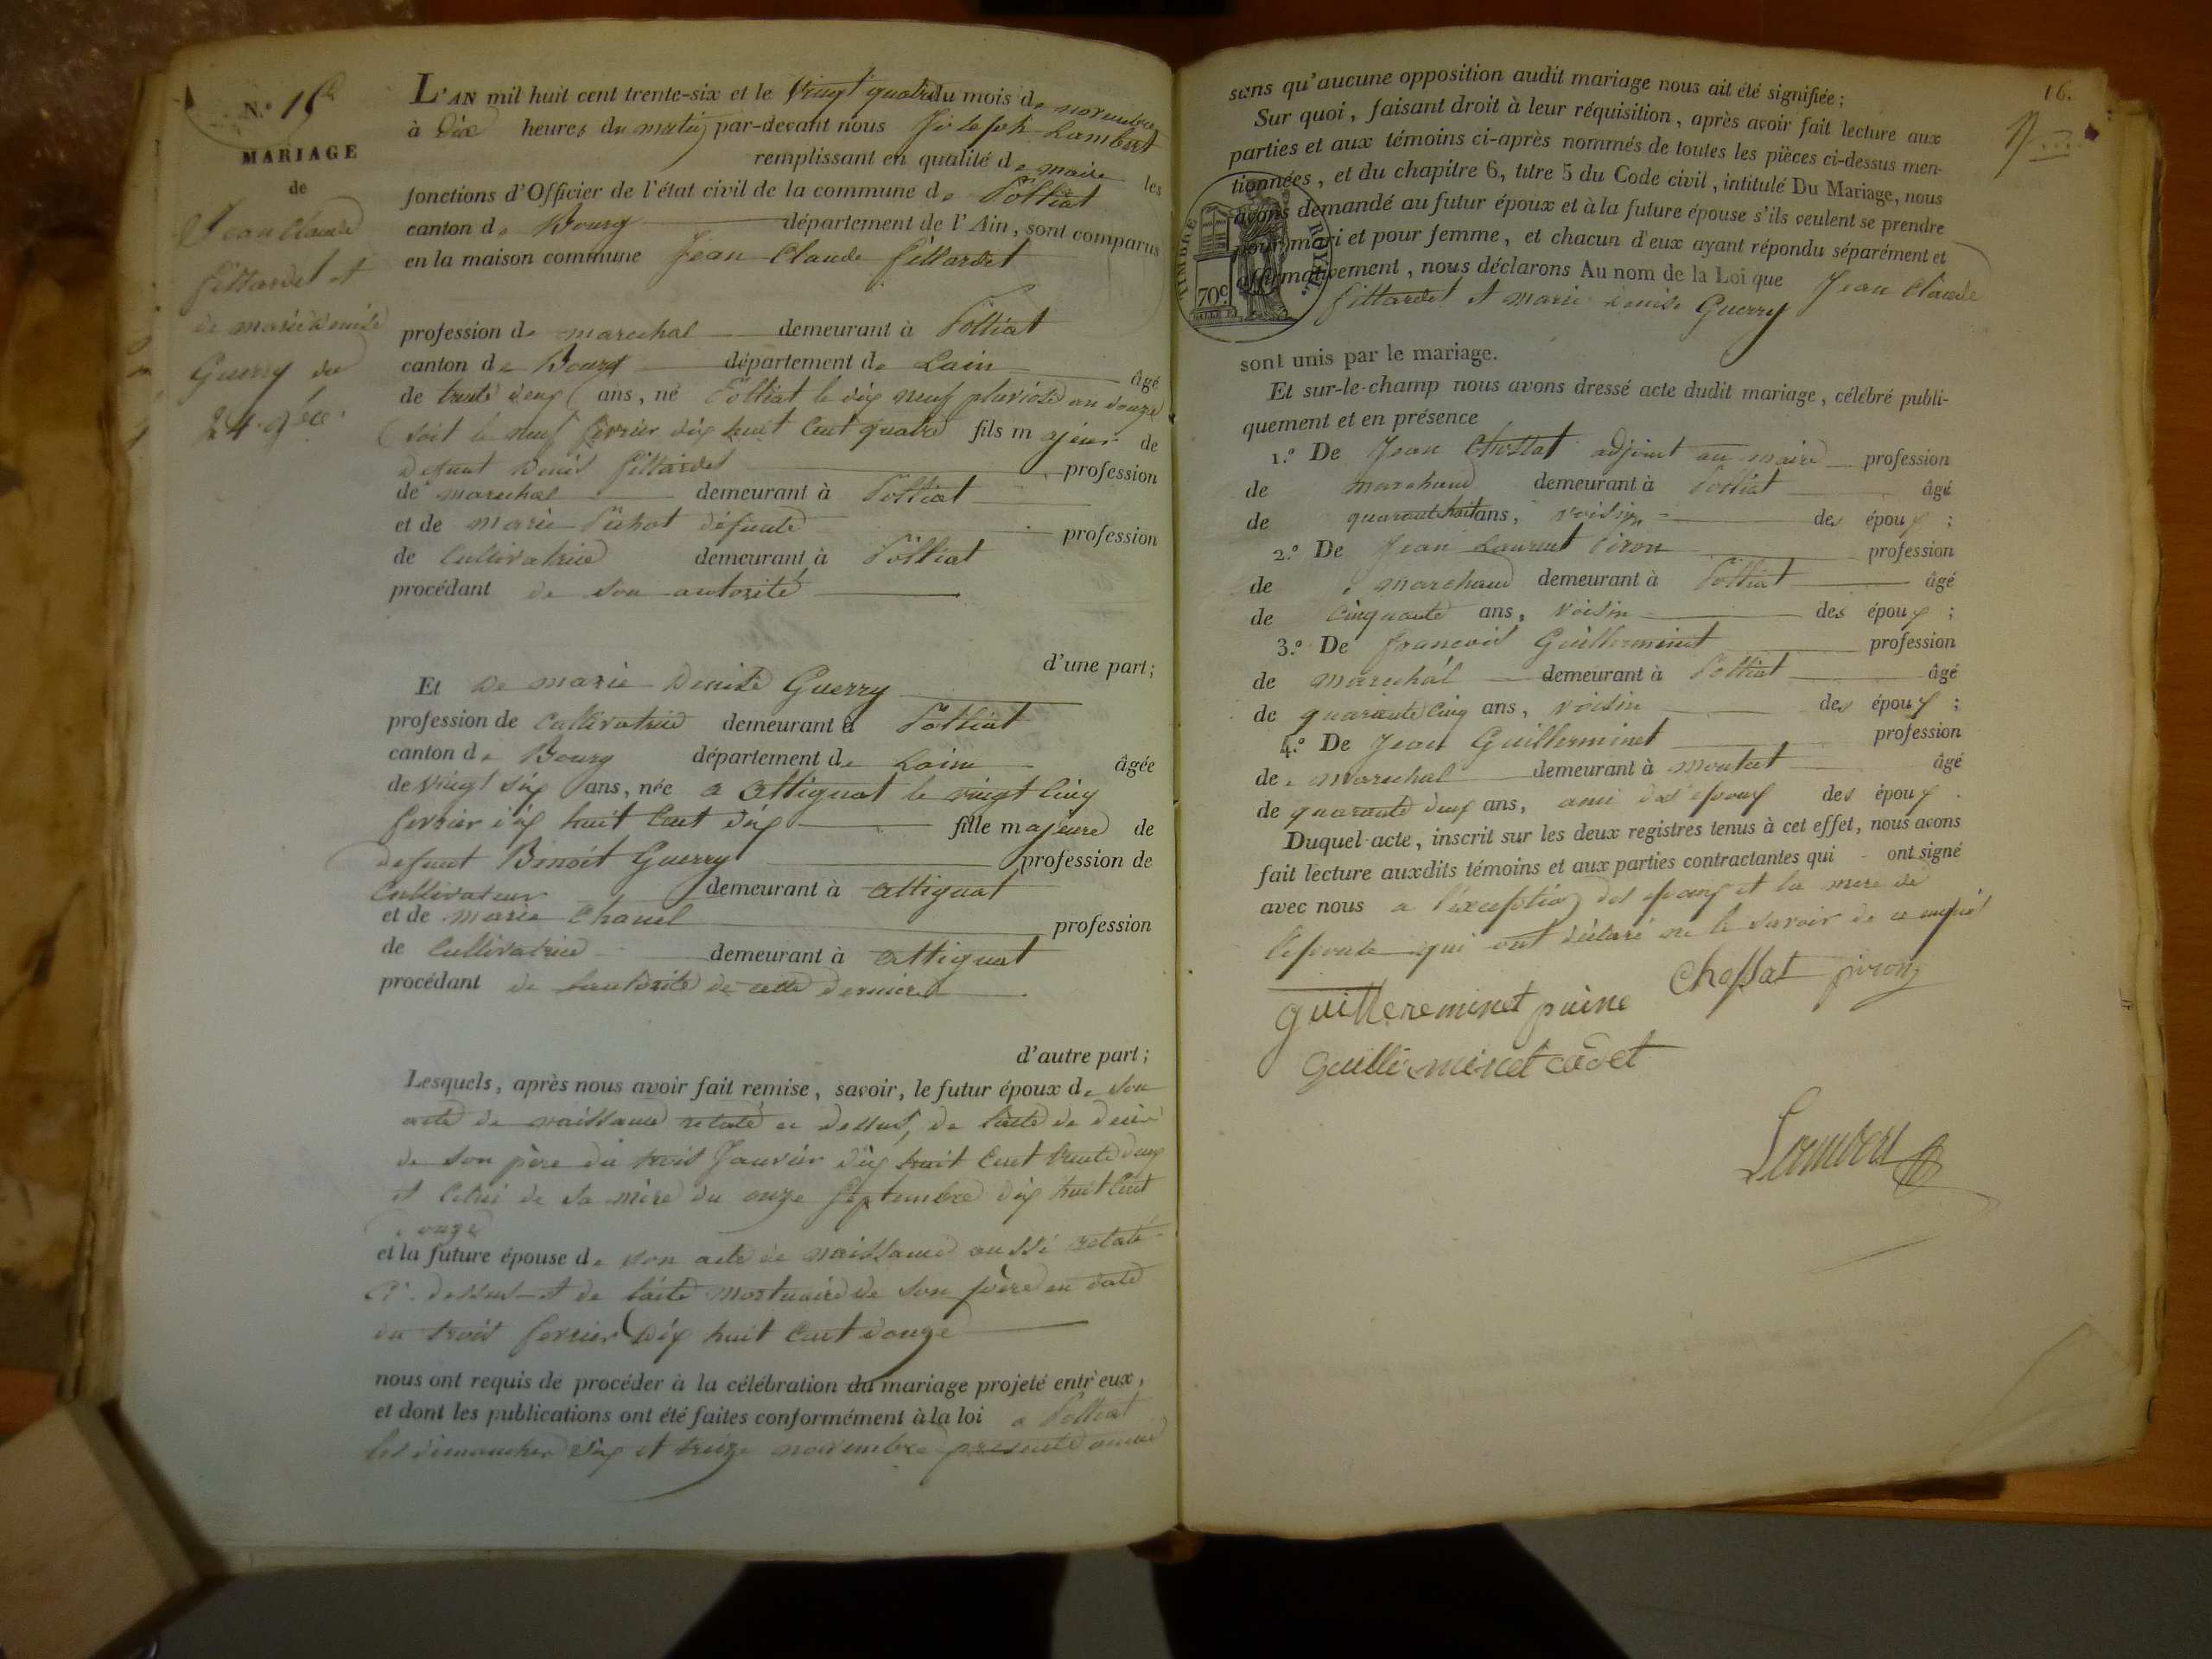 N.º 15
MARIAGE
de
Jean Claude
Pittardet et
de marie denise
Guerry du
24. 9bre
L'AN mil huit cent trente-six et le vingt quatre du mois de novembre
à Dix heures du matin par-devant nous Joseph Lambert
remplissant en qualité de maire les
fonctions d'Officier de l'état civil de la commune de Polliat
canton de Bourg département de l'Ain, sont comparus
en la maison commune Jean Claude Pittardet
profession de marechal demeurant à Polliat
canton de Bourg département de Lain âgé
de trente deux ans, né Polliat le dix neuf pluviose an douze
soit le neuf fevrier dix huit cent quatre fils majeur de
defunt Denis Pittardet profession
de marechal demeurant à Polliat
et de marie Pithot défunte profession
de Cultivatrice demeurant à Polliat
procédant de son autorité
d'une part;
Et De marie Denise Guerry
profession de Cultivatrice demeurant à Polliat
canton de Bourg département de Lain âgée
de vingt six ans, née a attignat le vingt cinq
fevrier dix huit cent dix fille majeure de
defunt Benoit Guerry profession de
Cultivateur demeurant à attignat
et de marie Chanel profession
de Cultivatrice demeurant à attignat
procédant de lautorité de cette derniere
d'autre part;
Lesquels, après nous avoir fait remise, savoir, le futur époux de son
acte de naissance relaté ci dessus, de lacte de décès
de son père du trois Janvier dix huit cent trente deux
et celui de sa mère du onze Septembre dix huit cent
onze
et la future épouse de son acte de naissance aussi relaté
ci dessus et de lacte mortuaire de son père en date
du trois fevrier dix huit cent douze
nous ont requis de procéder à la célébration du mariage projeté entr'eux,
et dont les publications ont été faites conformément à la loi a Polliat
les dimanches six et treize novembre presente année
16.
sans qu'aucune opposition audit mariage nous ait été signifiée;
Sur quoi, faisant droit à leur réquisition, après avoir fait lecture aux
parties et aux témoins ci-après nommés de toutes les pièces ci-dessus men-
tionnées, et du chapitre 6, titre 5 du Code civil, intitulé Du Mariage, nous
avons demandé au futur époux et à la future épouse s'ils veulent se prendre
pour mari et pour femme, et chacun d'eux ayant répondu séparément et
affirmativement, nous déclarons Au nom de la Loi que Jean Claude
Pittardet et marie denise Guerry
TIMBRE ROYAL.
70c
sont unis par le mariage.
Et sur-le-champ nous avons dressé acte dudit mariage, célébré publi-
quement et en présence
1.º De Jean Chossat adjoint au maire profession
de marchand demeurant à Polliat âgé
de quarante huit ans, voisin des époux ;
2.º De Jean Laurent Piron profession
de marchand demeurant à Polliat âgé
de cinquante ans, voisin des époux ;
3.º De francois Guillerminet profession
de maréchal demeurant à Polliat âgé
de quarante cinq ans, voisin des époux ;
4.º De Jean Guillerminet profession
de marechal demeurant à âgé
de quarante deux ans, ami des epoux des époux
Duquel acte, inscrit sur les deux registres tenus à cet effet, nous avons
fait lecture auxdits témoins et aux parties contractantes qui ont signé
avec nous a l'exception des epoux et la mere de
lepouse qui ont déclaré ne le savoir de ce enquis
Chossat piron
guillereminet puine
guilleminet cadet
Lambert